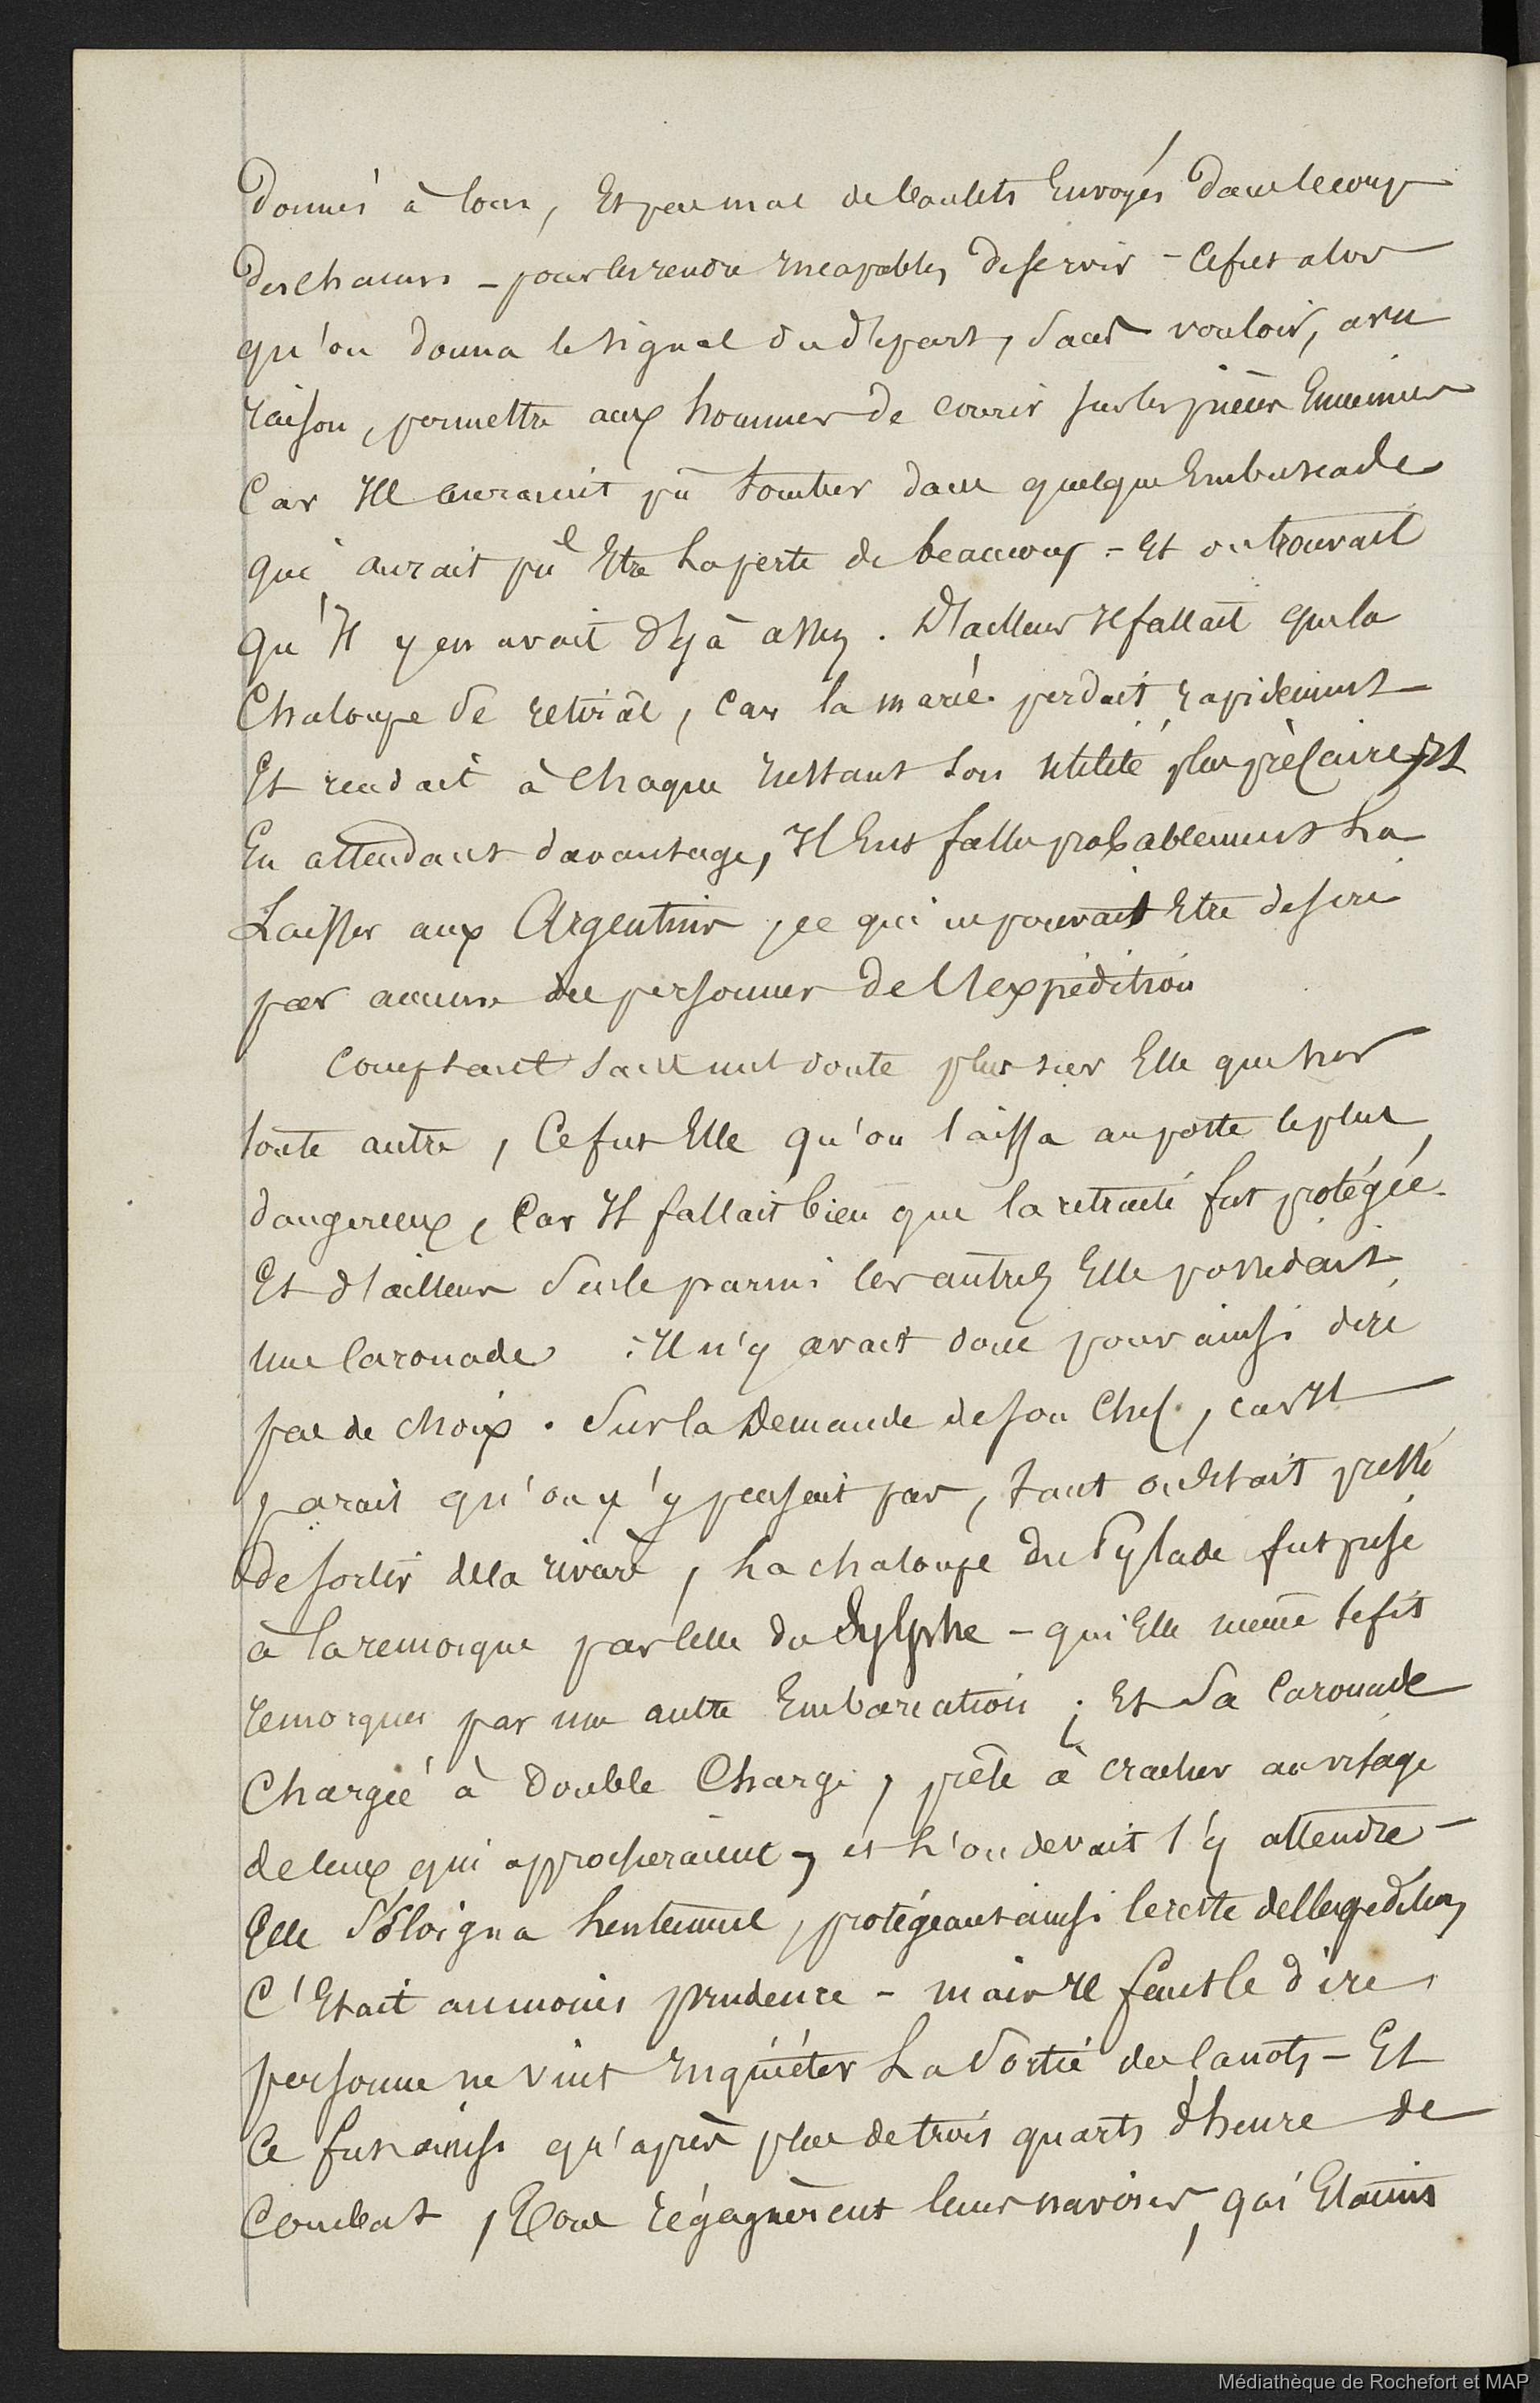 donnés à tous, Et pas mal de boulets Envoyés dans le corps
des chacuns - pour les rendre Incapables de servir - Ce fut alors
qu'on donna le signal du départ, sans vouloir, avec
raison, permettre aux hommes de courir sur les pièces Ennemies
Car Ils auraient pû tomber dans quelque Embuscade
qui aurait pû Etre La perte de beaucoup - Et on trouvait
qu'Il y en avait déjà assez. D'ailleurs Il fallait que la
Chaloupe se retirât, Car la marée perdait rapidement
Et rendait à Chaque Instant son utilité plus précaire, Et
En attendant davantage, Il Eut fallu probablement La
Laisser aux Argentins, ce qui ne pouvait Etre desiré
par aucune des personnes de l'expédition
Comptant sans nul doute plus sur Elle que sur
toute autre, Ce fut Elle qu'on laissa au poste le plus
dangereux, Car Il fallait bien que la retraite fut protégée
Et d'ailleurs Seule parmi les autres Elle possedait
une Caronade : Il n'y avait donc pour ainsi dire
pas de choix. Sur la Demande de son Chef, car Il
parait qu'on n'y pensait pas, tant on Etait pressé
de sortir de la rivière, La chaloupe du Pylade fut prise
à la remorque par celle du Sylphe - qui Elle même se fit
remorquer par une autre Embarcation ; Et Sa Caronade
Chargée à Double Charge, prête à cracher au visage
de ceux qui approcheraient, et L'on devait s'y attendre -
Elle S'éloigna Lentement, protégeant ainsi le reste de l'expédition,
C'Etait au moins prudence - mais Il faut le dire,
personne ne vint Inquiéter La Sortie des Canots - Et
Ce fut ainsi qu'après plus de trois quarts d'heure de
Combat, Tous régagnèrent leurs navires, qui Etaient
Médiathèque de Rochefort et MAP